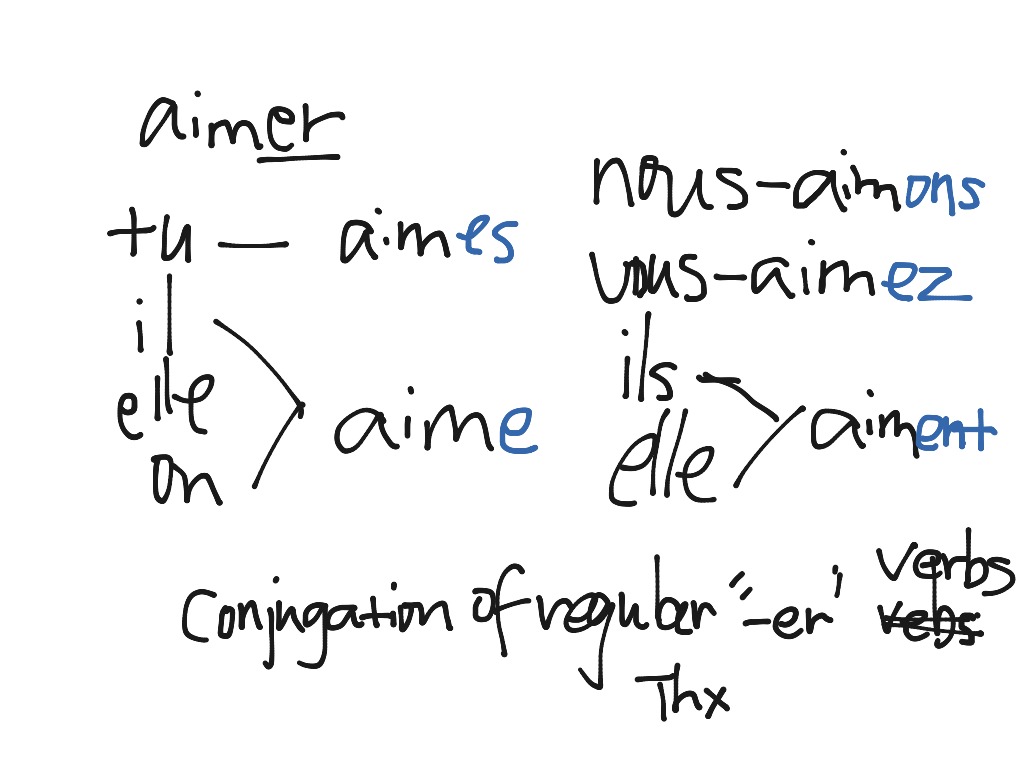 aimer
tu — aimes
il
elle
on
aime
nous-aimons
vous-aimez
ils
elle
aiment
Conjugation of regular "-er" verbs
vebs
Thx